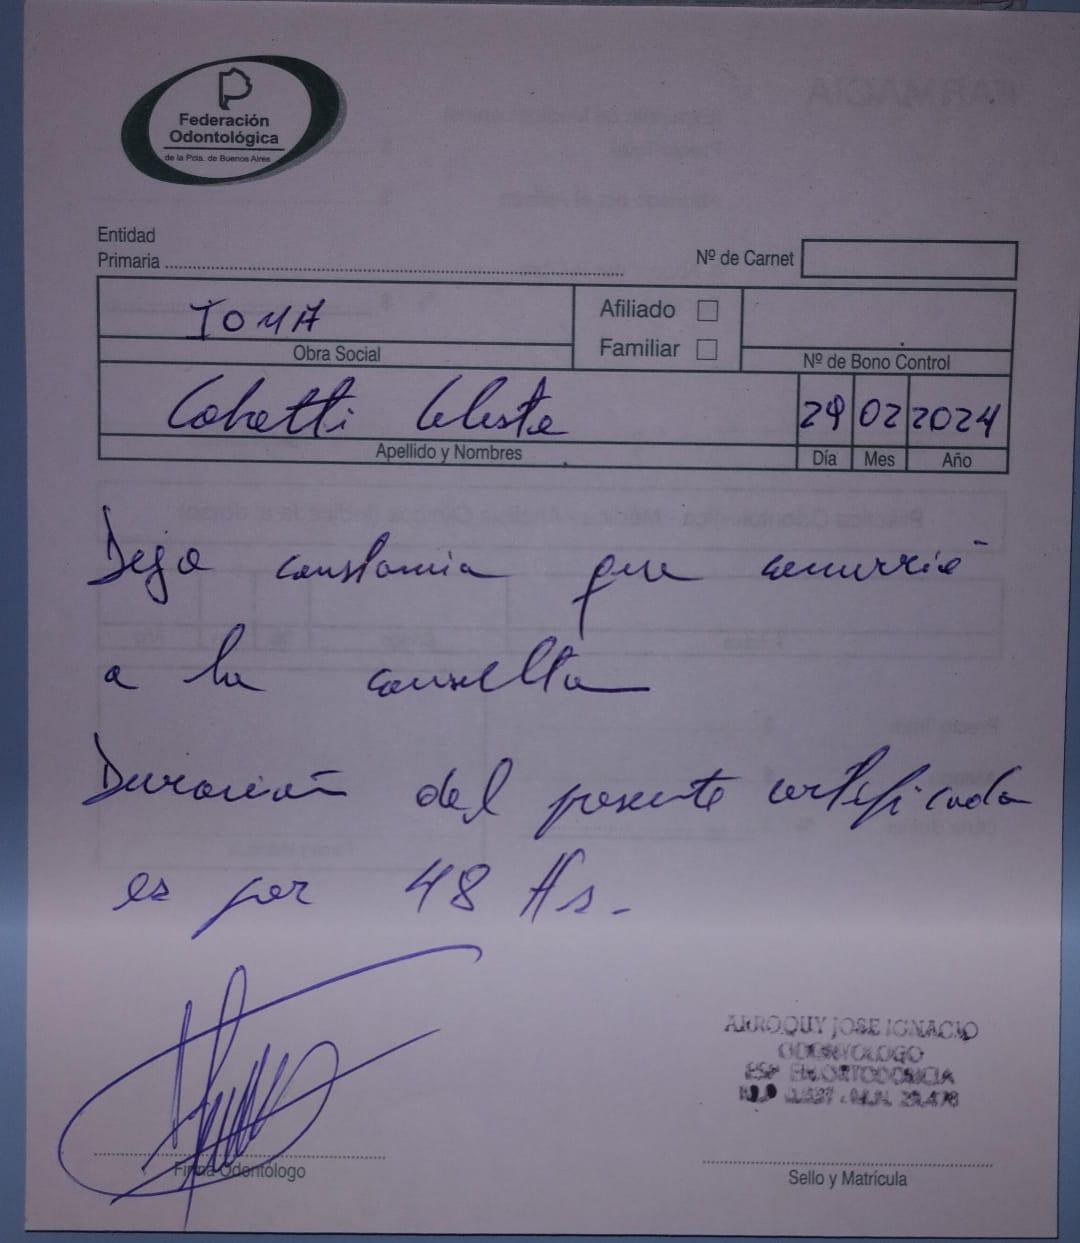 Federación
Odontológica
de la Pcia. de Buenos Aires
Entidad
Primaria
Nº de Carnet
IOMA
Obra Social
Afiliado
Familiar
Nº de Bono Control
Celeste
Apellido y Nombres
29 02 2024
Día Mes Año
Dejo constancia que concurrió
a la consulta
Duración del presente certificado
es por 48 Hs.-
ARROQUY JOSE IGNACIO
ODONTOLOGO
ESP EN ORTODONCIA
Firma Odontólogo
Sello y Matrícula